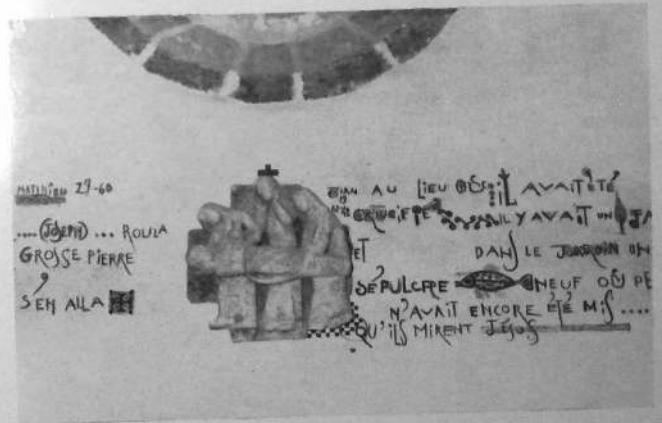 MATTHIEU 27-60
....(JOSEPH)... ROULA
GROSSE PIERRE
S'EN ALLA
JEAN 19 AU LIEU OÙ IL AVAIT ÉTÉ
CRUCIFIÉ IL Y AVAIT UN JA
ET DANS LE JARDIN UN
SÉPULCRE NEUF OÙ PE
N'AVAIT ENCORE ÉTÉ MIS ....
QU'ILS MIRENT JÉSUS